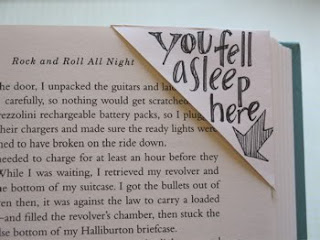 you fell
asleep
here
Rock and Roll All Night
the door, I unpacked the guitars and
carefully, so nothing would get scratched
rechargeable battery packs, so I
their chargers and made sure the ready lights were
to have broken on the ride down.
needed to charge for at least an hour before they
While I was waiting, I retrieved my revolver and
bottom of my suitcase. I got the bullets out of
even then, it was against the law to carry a loaded
—and filled the revolver's chamber, then stuck the
bottom of my Halliburton briefcase.